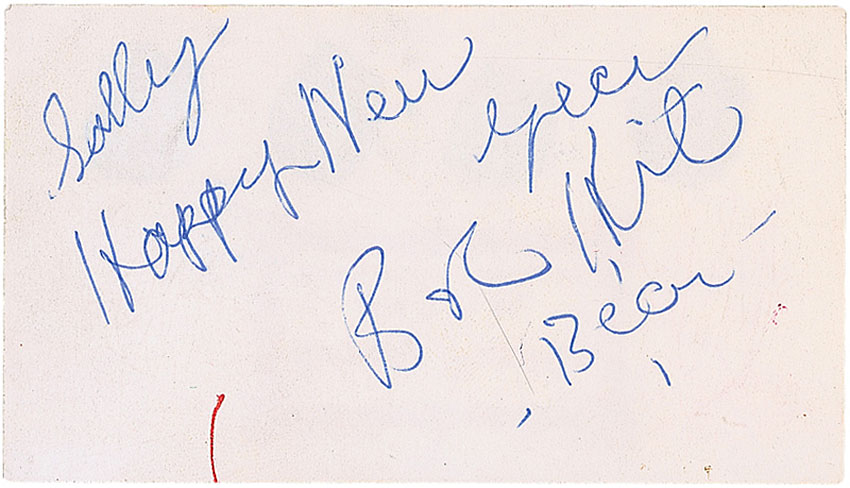 Sally
Happy New Year
Bob Hite
"Bear"